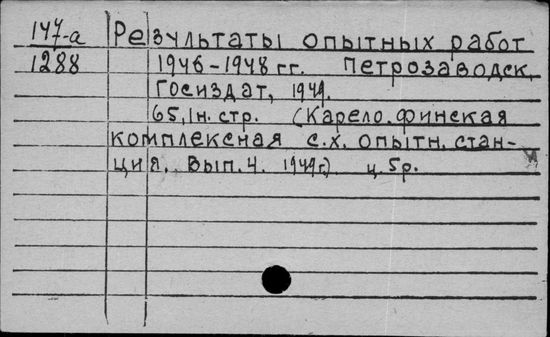 147-а Результаты опытных работ
1288 1946-1948 гг. Петрозаводск,
Госиздат, 1949.
65, 1н. стр. (Карело. финская
комплексная с.х. опытн. стан-
ция. Вып. 4. 1949г.) ц. 5р.